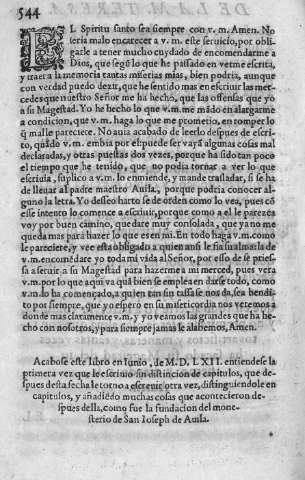 544
EL Spiritu santo sea siempre con v. m. Amen. No
seria malo encarecer a v. m. este seruicio, por obli-
garle a tener mucho cuydado de encomendarme a
Dios, que segũ lo que he passado en verme escrita,
y traer a la memoria tantas miserias mias, bien podria, aunque
con verdad puedo dezir, que he sentido mas en escriuir las mer-
cedes que nuestro Señor me ha hecho, que las offensas que yo
a su Magestad. Yo he hecho lo que v. m. me mãdò en alargarme
a condicion, que v. m. haga lo que me prometio, en romper lo
q̃ mal le pareciere. No auia acabado de leerlo despues de escri-
to, quãdo v. m. embia por el: puede ser vayã algunas cosas mal
declaradas, y otras puestas dos vezes, porque ha sido tan poco
el tiempo que he tenido, que no podia tornar a ver lo que
escriuia, suplico a v. m. lo enmiende, y mande trasladar, si se ha
de lleuar al padre maestro Auila, porque podria conocer algu-
no la letra. Yo desseo harto se de orden como lo vea, pues cõ
esse intento lo comence a escriuir, porque como a el le parezca
voy por buen camino, quedare muy consolada, que ya no me
queda mas para hazer lo que es en mi. En todo haga v. m. como
le pareciere, y vee està obligado a quien ansi le fia su alma. la de
v. m. encomẽdare yo toda mi vida al Señor, por esso de se pries-
sa a seruir a su Magestad para hazerme a mi merced, pues vera
v. m. por lo que aqui va quã bien se emplea en darse todo, como
v. m. lo ha començado, a quien tan sin tassa se nos da. sea bendi-
to por siempre, que yo espero en su misericordia nos veremos a
donde mas claramente v. m. y yo veamos las grandes que ha he-
cho con nosotros, y para siempre jamas le alabemos, Amen.
Acabose este libro en Iunio, de M. D. LXII. entiendese la
primera vez que le escriuio sin distincion de capitulos, que de-
spues desta fecha le torno a escreuir otra vez, distinguiendole en
capitulos, y añadiẽdo muchas cosas que acontecieron de-
spues della, como fue la fundacion del mone-
sterio de San Ioseph de Auila.